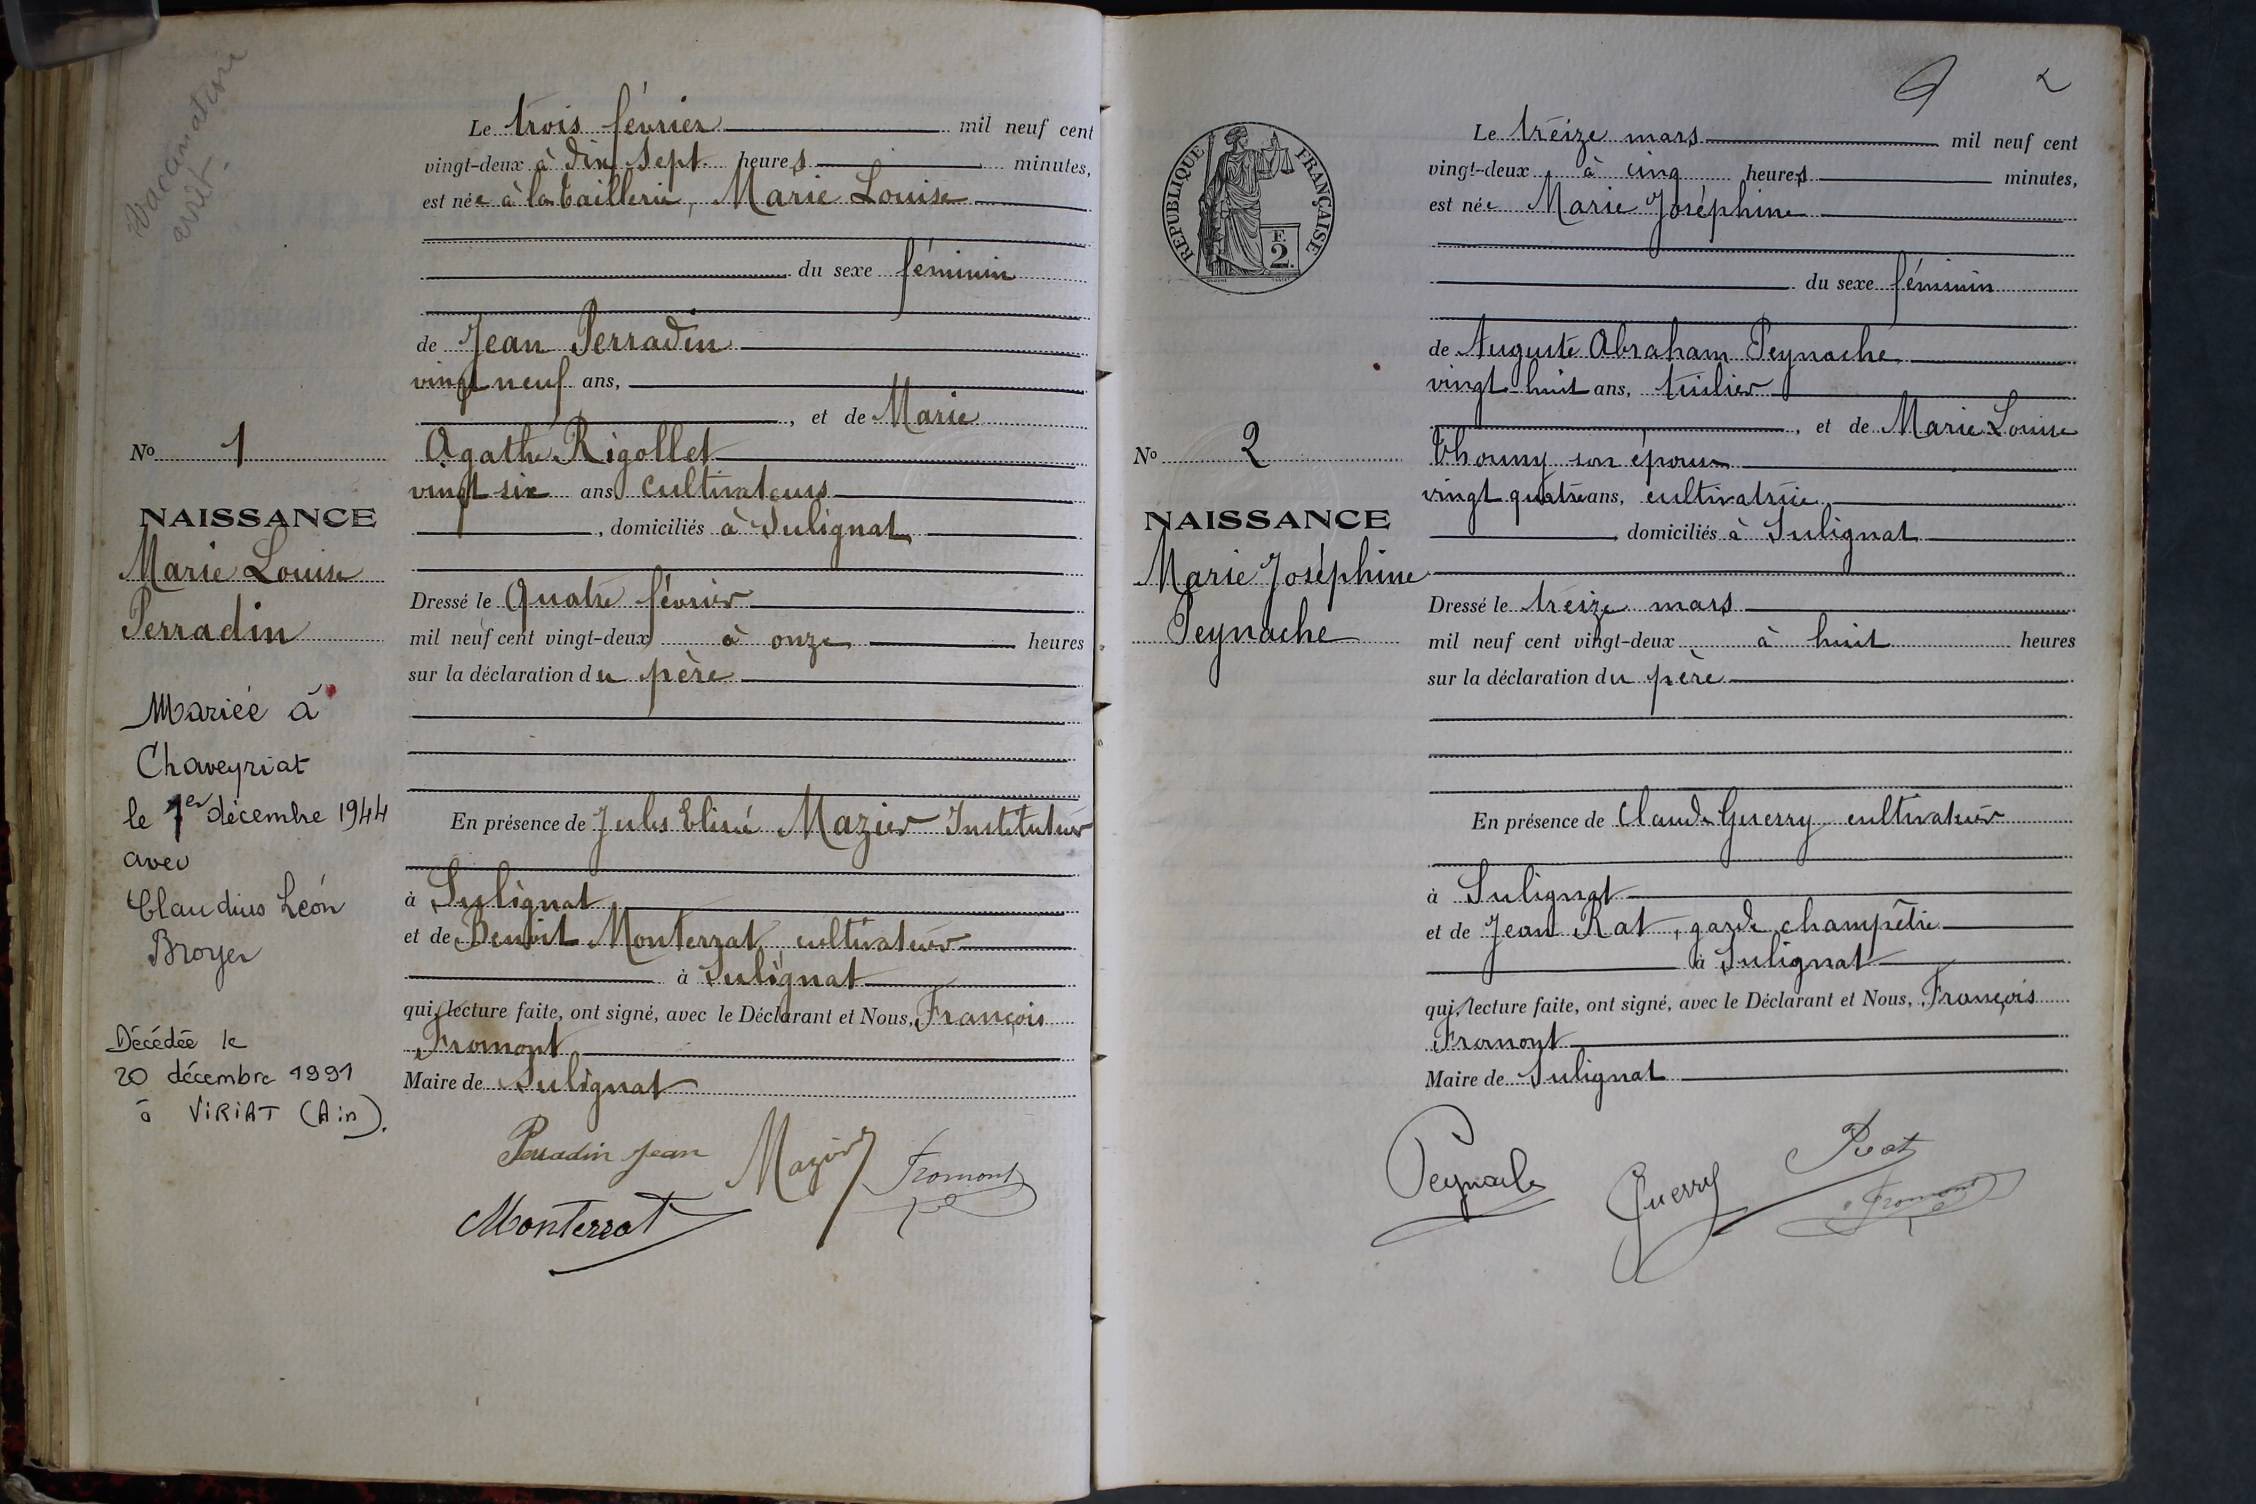 Vaccination
arrêt.
Le trois février mil neuf cent
vingt-deux à dix sept heures minutes,
est née à la taillerie, Marie Louise
du sexe féminin
de Jean Perradin
vingt neuf ans,
, et de Marie
Agathe Rigollet
vingt six ans cultivateurs
, domiciliés à Sulignat
Dressé le Quatre février
mil neuf cent vingt-deux à onze heures
sur la déclaration du père
En présence de Jules Elisé Mazier Instituteur
à Sulignat
et de Benoit Monterrat, cultivateur
à Sulignat
qui, lecture faite, ont signé, avec le Déclarant et Nous, François
Fromont
Maire de Sulignat
Perradin Jean Mazier Fromont
Monterrat
No 1
NAISSANCE
Marie Louise
Perradin
Mariée à
Chaveyriat
le 1er décembre 1944
avec
Claudius Léon
Broyer
Décédée le
20 décembre 1991
à VIRIAT (Ain).
2
RÉPUBLIQUE FRANÇAISE
F.
2.
Le treize mars mil neuf cent
vingt-deux à cinq heures minutes,
est née Marie Joséphine
du sexe féminin
de Auguste Abraham Peynache
vingt-huit ans, tuilier
, et de Marie Louise
Thoumy son épouse
vingt quatre ans, cultivatrice
, domiciliés à Sulignat
Dressé le treize mars
mil neuf cent vingt-deux à huit heures
sur la déclaration du père
En présence de Claude Guerry cultivateur
à Sulignat
et de Jean Rat, garde champêtre
à Sulignat
qui, lecture faite, ont signé, avec le Déclarant et Nous, François
Fromont
Maire de Sulignat
Peynache Guerry Rat
Fromont
No 2
NAISSANCE
Marie Joséphine
Peynache